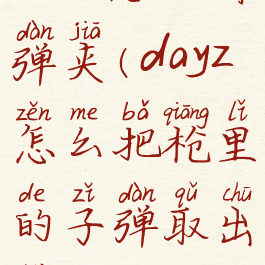 dàn jiā
弹夹(dayz
zěn me bǎ qiāng lǐ
怎么把枪里
de zǐ dàn qǔ chū
的子弹取出